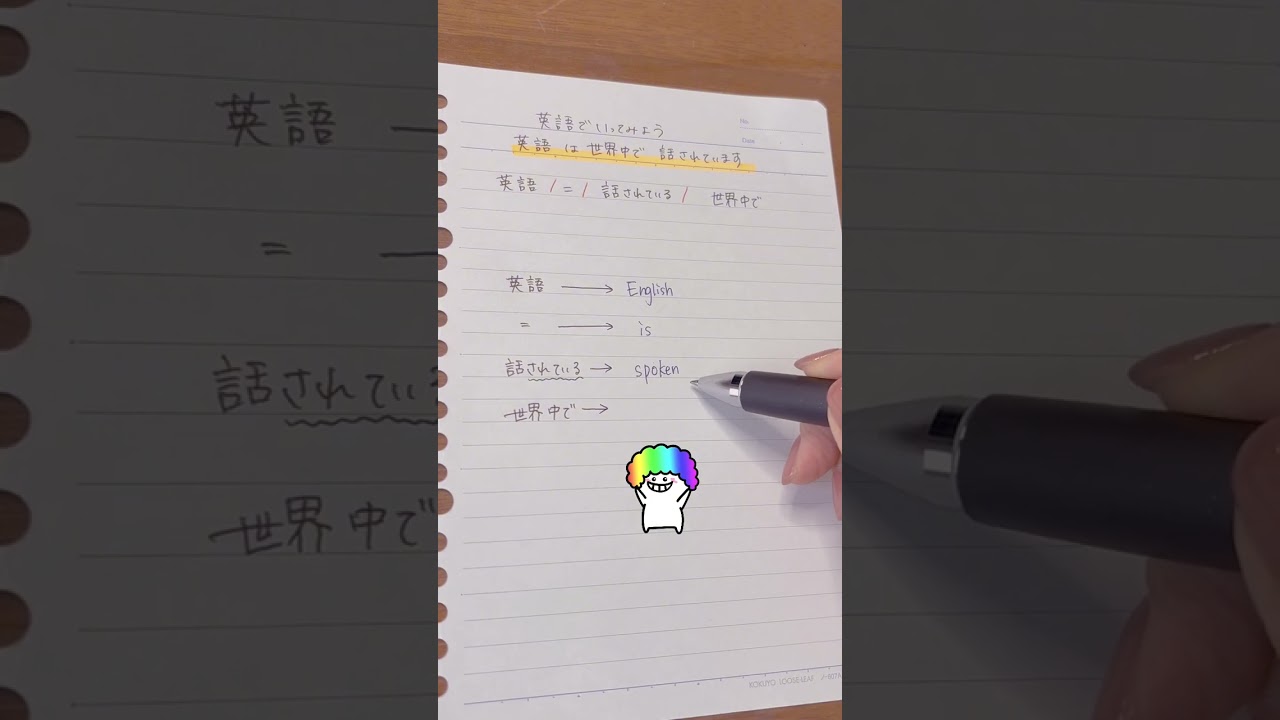 英語でいってみよう
英語 は 世界中で 話されています
英語 / = / 話されている / 世界中で
英語 → English
= → is
話されている → spoken
世界中で →
No.
Date
KOKUYO LOOSELEAF